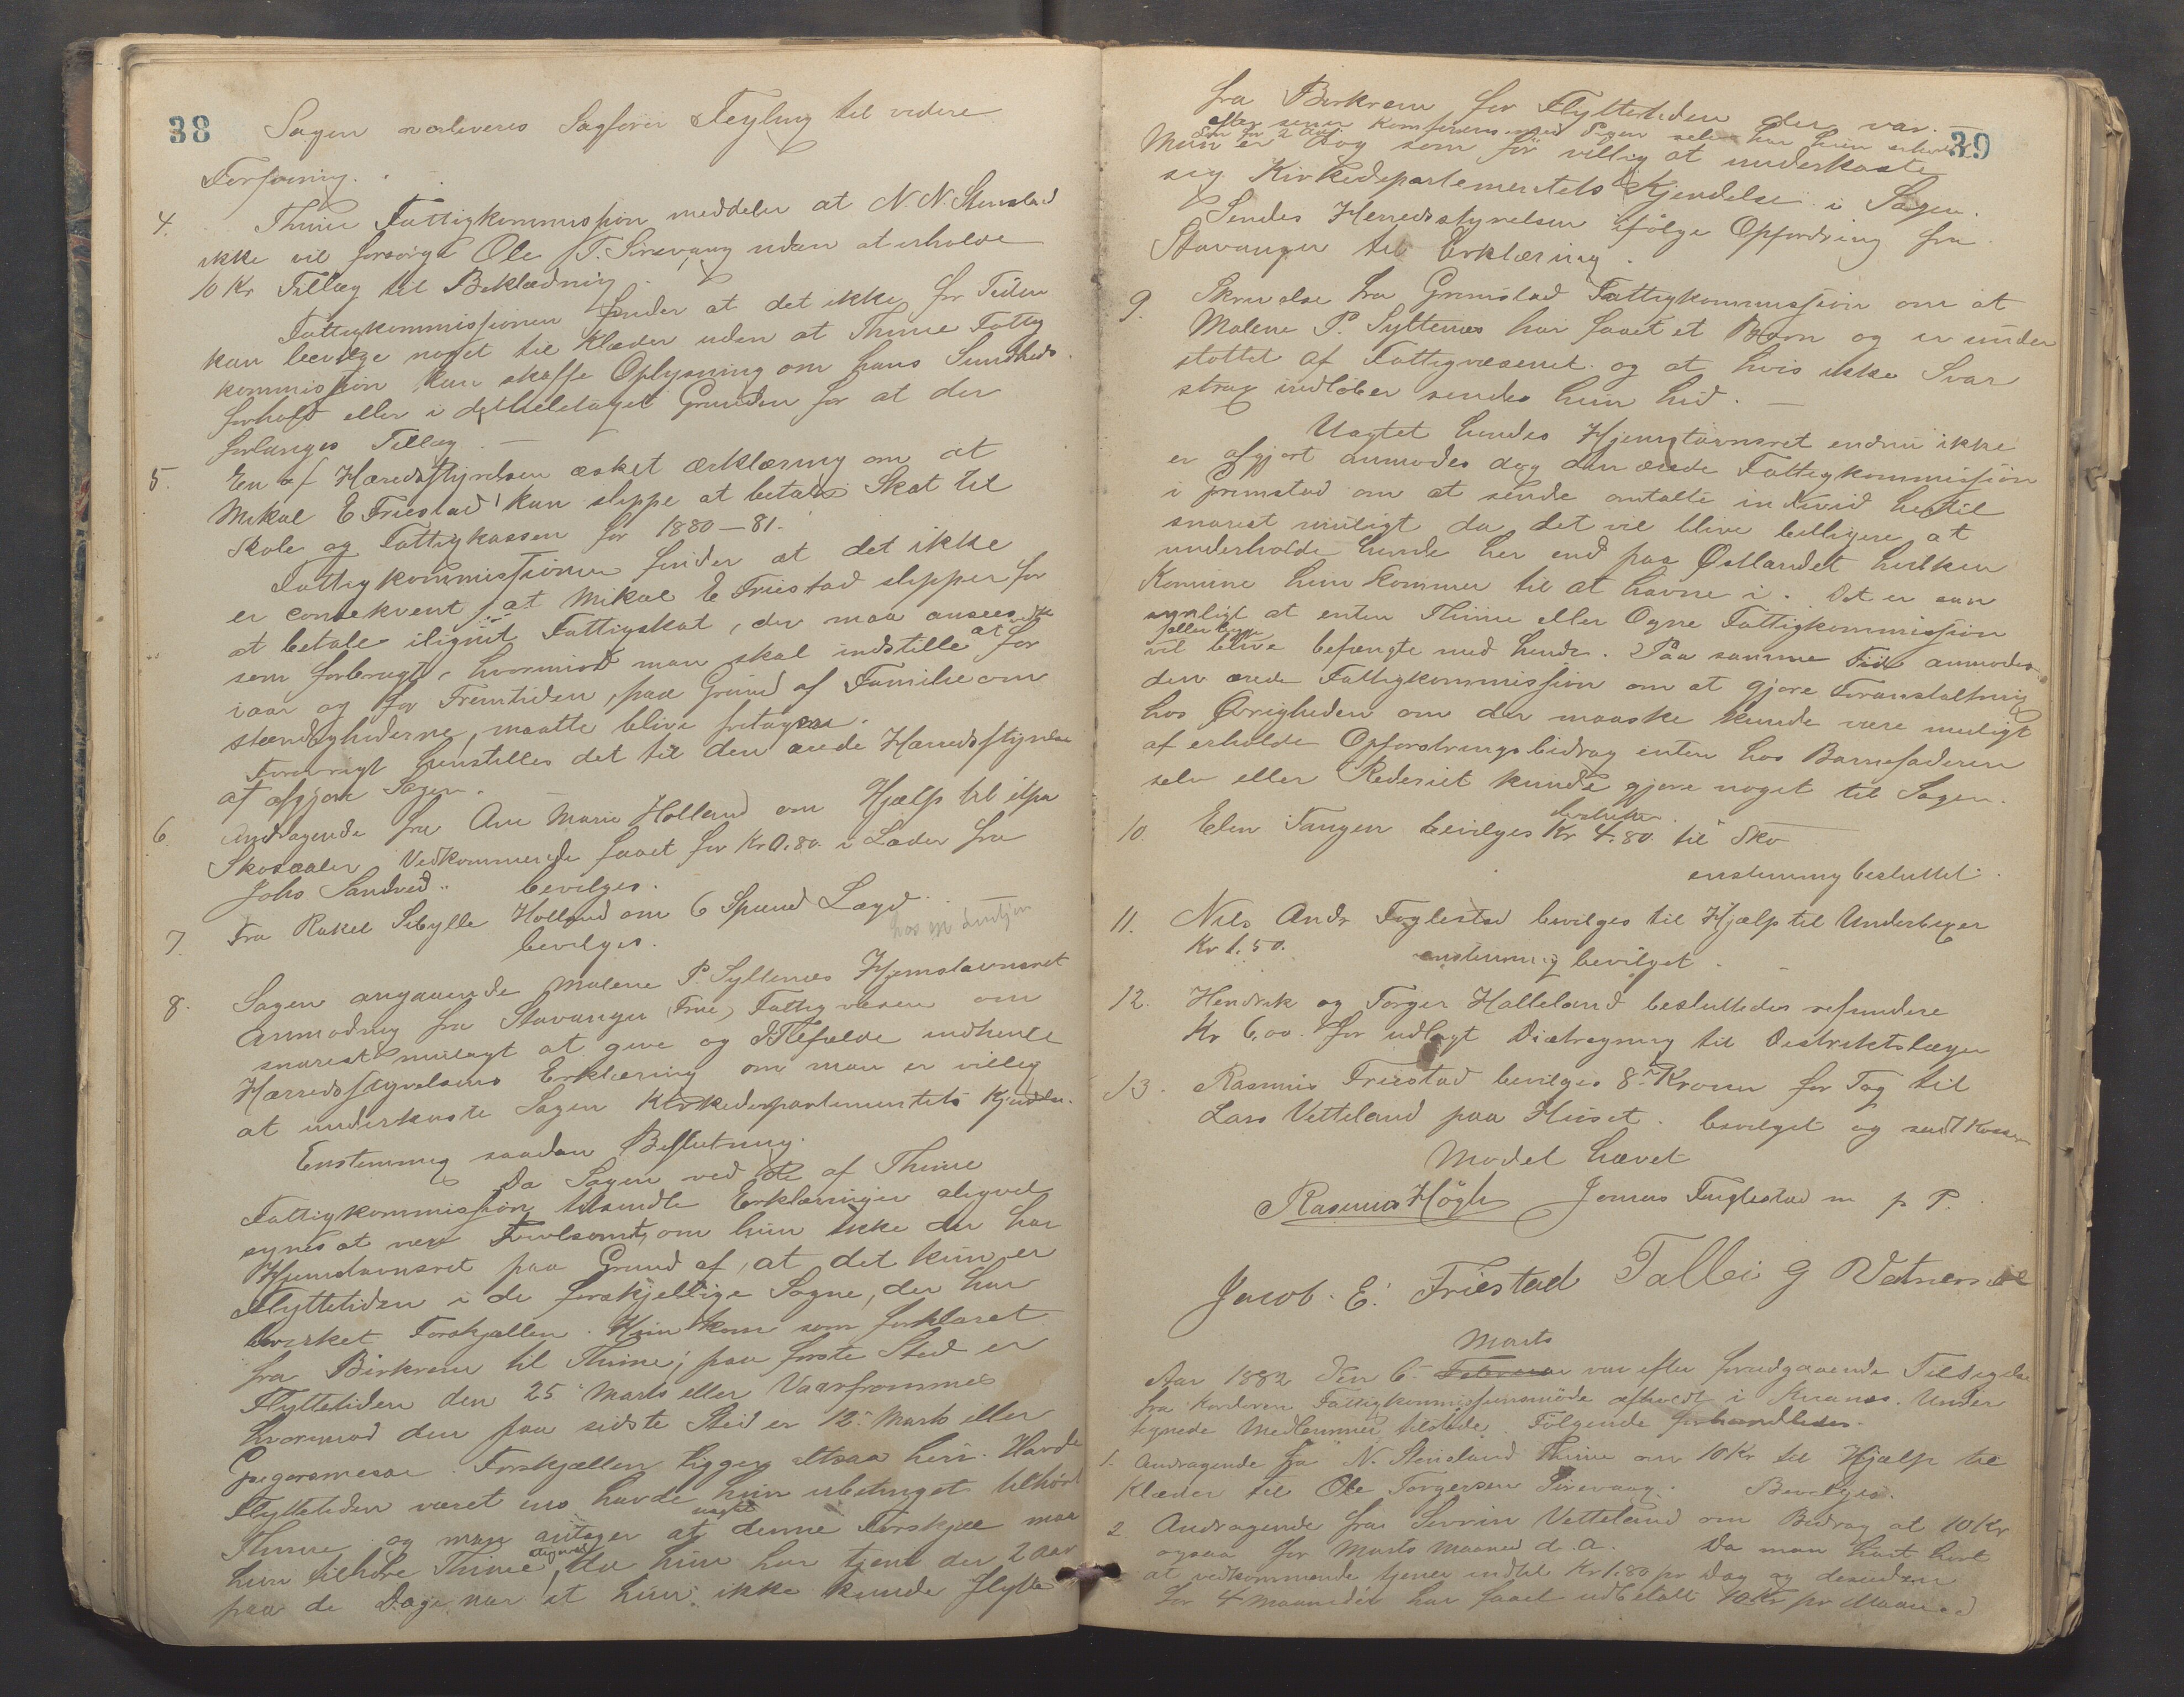 38
Sagen overleveres Sagfører Feyling til videre
Forføining.
4. Thime Fattigkommission meddeler at N. N. Stenslad
ikke vil forsørge Ole T. Sirevaag uden at erholde
10 Kr Tillæg til Beklædning.
Fattigkommissionen finder at det ikke for Tiden
kan bevilge noget til Klæder uden at Thime Fattig
kommission kan skaffe Oplysning om hans Sundheds
forhold eller i det heletaget Grunden for at der
forlanges Tillæg. —
5. En af Hæredsstyrelsen æsket Ærklæring om at
Mikal E Friestad kan slippe at betale Skat til
Skole og Fattigkassen for 1880—81.
Fattigkommissionen finder at det ikke
er consekvent, at Mikal E Friestad slipper for
at betale ilignet Fattigskat, der maa ansees
som forbrugt, hvorimod man skal indstille at for
iaar og for Fremtiden, paa Grund af Familieom
stændighederne, maatte blive fritagen.
Forøvrigt henstilles det til den ærede Hærredsstyrelse
at afgjøre Sagen.
6 Andragende fra Ane Marie Holland om Hjælp til
Skosaaler, Vedkommende faaet for Kr 0.80 i Læder fra
Johs Sandved.. bevilges.
7. Fra Rakel Sibylle Holland om 6 Spund Lagd.
bevilges.
8. Sagen angaaende Malene P. Syltenæs Hjemstavnsret
Anmodning fra Stavanger (Frue) Fattigvæsen om
snarest muligt at give og tilfælde indhente
Hærredsstyrelsens Erklæring om man er villig
at underkaste Sagen Kirkedepartementets Kjendelse.
Enstemmig saadan Beslutning.
Da Sagen ved de af Thime
Fattigkommission tilsendte Erklæringer aligevel
synes at være Tvilsomt, om hun ikke der har
Hjemstavnsret paa Grund af, at det kun er
Flyttetiden i de forskjellige Sogne, der har
bevirket Forskjellen. Hun kom som forklaret
fra Birkrem til Thime; paa første Sted er
Flyttetiden den 25 Marts eller Vaarfrommes
hvorimod den paa sidste Sted er 12. Marts eller
Gregorsmesse. Forskjellen ligger altsaa heri. Havde
Flyttetiden været ens havde hun ubetinget tilhørt
Thime og man antager at uagtet denne Forskjel maa
hun tilhøre Thime aligevel, da hun har tjent der 2 Aar
paa de Dage nær at hun ikke kunde flytte
39
fra Birkrem før Flyttetiden der var.
Man er dog som før villig at underkaste
sig Kirkedepartementets Kjendelse i Sagen.
Sendes Herredsstyrelsen ifølge Opfordring fra
Stavanger til Erklæring.
9. Skrivelse fra Grimstad Fattigkommission om at
Malene P. Syltenæs har faaet et Barn og er under
støttet af Fattigvæsenet og at hvis ikke Svar
strax indløber sendes hun hid. —
Uagtet hendes Hjemstavnsret endnu ikke
er afgjort anmodes dog den ærede Fattigkommission
i Grimstad om at sende omtalte individ hertil
snarest muligt da det vil blive billigere at
underholde hende her end paa Østlandet hvilken
Komune hun kommer til at havne i. Det er san
synligt at enten Thime eller Ogne Fattigkommission
vil blive befængte med hende. Paa samme Tid anmodes
den ærede Fattigkommission om at gjøre Foranstaltning
hos Øvrigheden om der maaske kunde være muligt
at erholde Opfostringsbidrag enten hos Barnefaderen
selv eller Rederiet kunde gjøre noget til Sagen.
10. Elen Tangen bevilges Kr 4.80 til Sko
enstemmig besluttet.
11. Nils Andr Fuglestad bevilges til Hjælp til Underbuxer
Kr 1.50. enstemmig bevilget.
12. Hendrik og Torger Halleland besluttedes refundere
Kr 6,00. for udlagt Diætregning til Distriktslægen
13. Rasmus Friestad bevilges 8 Kroner for Tag til
Lars Vetteland paa Huset. bevilget og
Mødet hævet
Rasmus Högh Jonas Fuglestad m p P.
Jacob. E. Friestad Tallei G Vatnemo
Marts
Aar 1882 den 6. Februar var efter forudgaaende Tilsigelse
fra Ordføren Fattigkommissionsmøde afholdt i Kranes. Under
tegnede Medlemmer tilstede. Følgende forhandledes.
1. Andragende fra N. Steneland Thime om 10 Kr til Hjælp til
Klæder til Ole Torgersen Sirevaag. Bevilges.
2 Andragende fra Sivrin Vetteland om Bidrag at 10 Kr
ogsaa for Marts Maaned d. A. Da man har hørt
at vedkommende tjener indtil Kr 1.80 pr Dag og desuden
for 4 Maaneder har faaet udbetalt 10 Kr pr Maaned